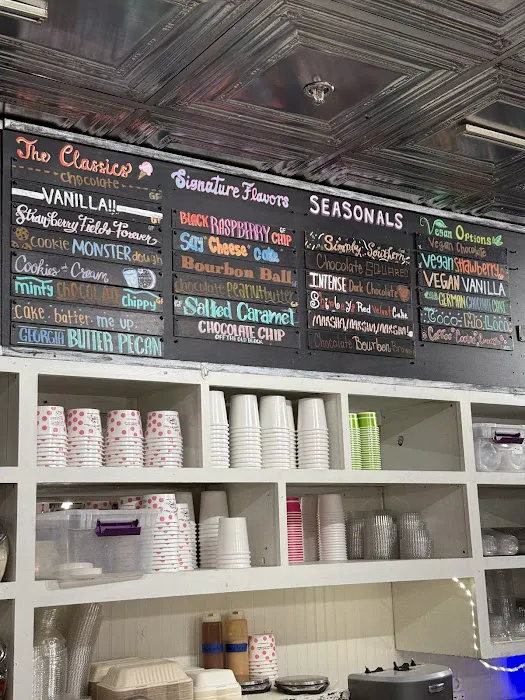 The Classics
chocolate
VANILLA!!
Strawberry Fields Forever
COOKIE MONSTER DOUGH
Cookies and Cream
minty CHOCOLATE chippy
cake batter me up
GEORGIA BUTTER PECAN
Signature Flavors
BLACK RASPBERRY CHIP
GF
Say "Cheese" cake
Bourbon Ball
chocolate peanut butter
Salted Caramel
CHOCOLATE CHIP
OFF THE OLD BLOCK
SEASONALS
Simply Southern
Chocolate SQUARED
INTENSE Dark Chocolate
Red Velvet Cake
MARSHA/MARSHA/MARSHA!
Chocolate Bourbon
Vegan Options
Vegan Chocolate
Vegan Strawberry
VEGAN VANILLA
GERMAN CHOCOLATE CAKE